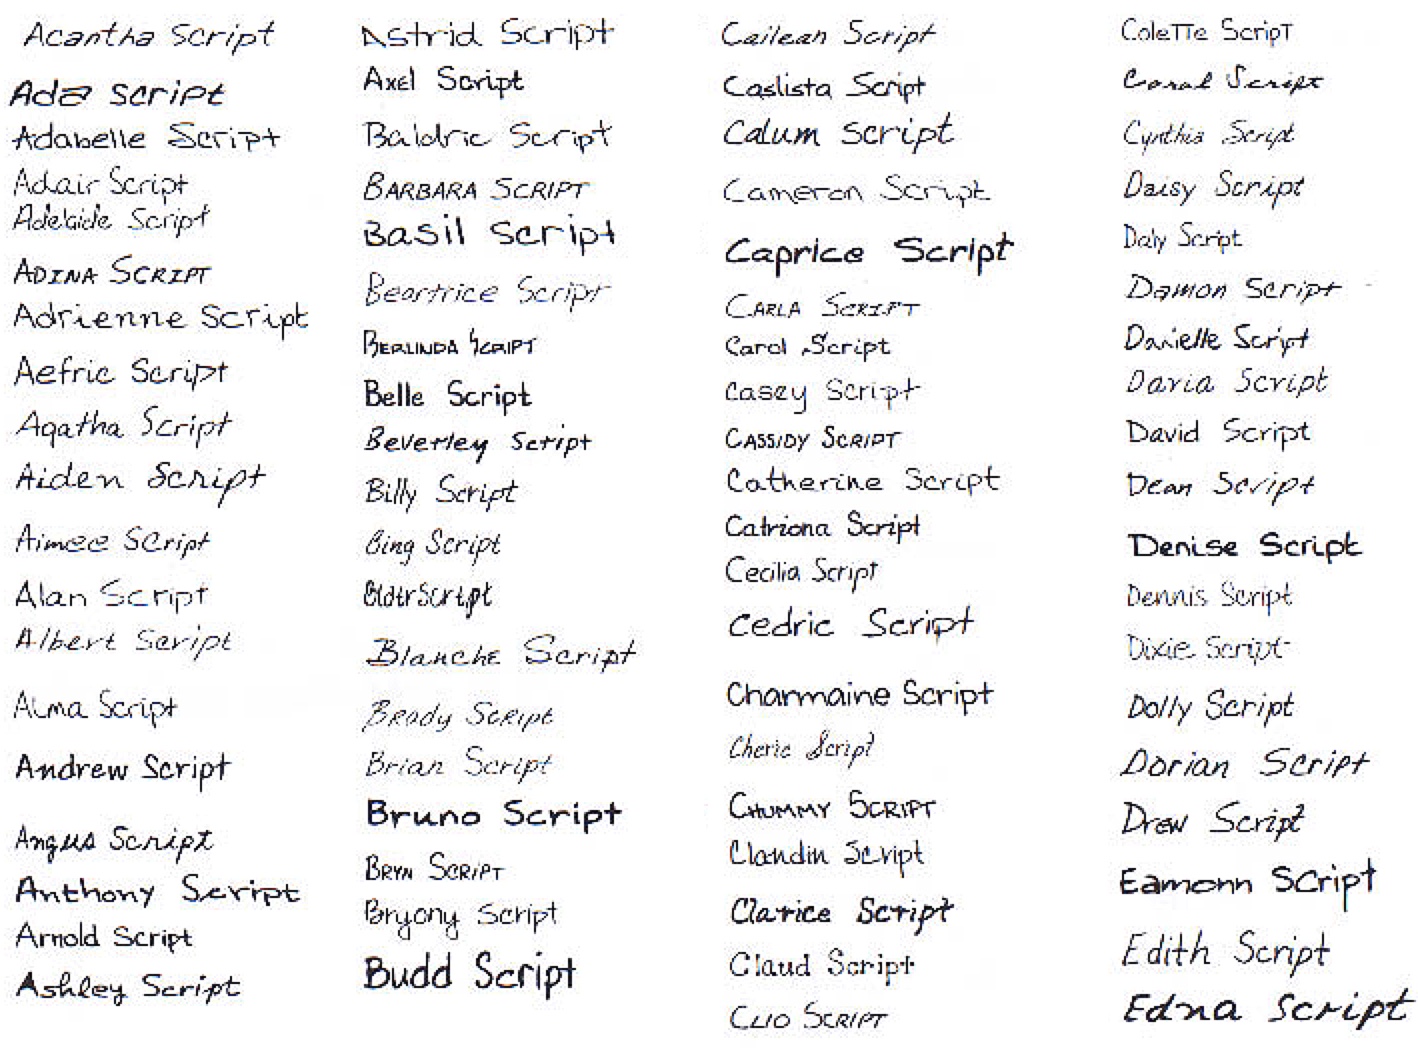 Acantha Script
Ada Script
Adabelle Script
Adair Script
Adelaide Script
ADINA SCRIPT
Adrienne Script
Aefric Script
Agatha Script
Aiden Script
Aimee Script
Alan Script
Albert Script
Alma Script
Andrew Script
Angus Script
Anthony Script
Arnold Script
Ashley Script
Astrid Script
Axel Script
Baldric Script
BARBARA SCRIPT
Basil Script
Beartrice Script
BERLINDA SCRIPT
Belle Script
Beverley Script
Billy Script
Bing Script
Script
Blanche Script
Brady Script
Brian Script
Bruno Script
BRYN SCRIPT
Bryony Script
Budd Script
Cailean Script
Caslista Script
Calum Script
Cameron Script
Caprice Script
CARLA SCRIPT
Carol Script
Casey Script
CASSIDY SCRIPT
Catherine Script
Catriona Script
Cecilia Script
Cedric Script
Charmaine Script
Cherie Script
CHUMMY SCRIPT
Claudin Script
Clarice Script
Claud Script
CLIO SCRIPT
Colette Script
Coral Script
Cynthia Script
Daisy Script
Daly Script
Damon Script
Danielle Script
Daria Script
David Script
Dean Script
Denise Script
Dennis Script
Dixie Script
Dolly Script
Dorian Script
Drew Script
Eamonn Script
Edith Script
Edna Script